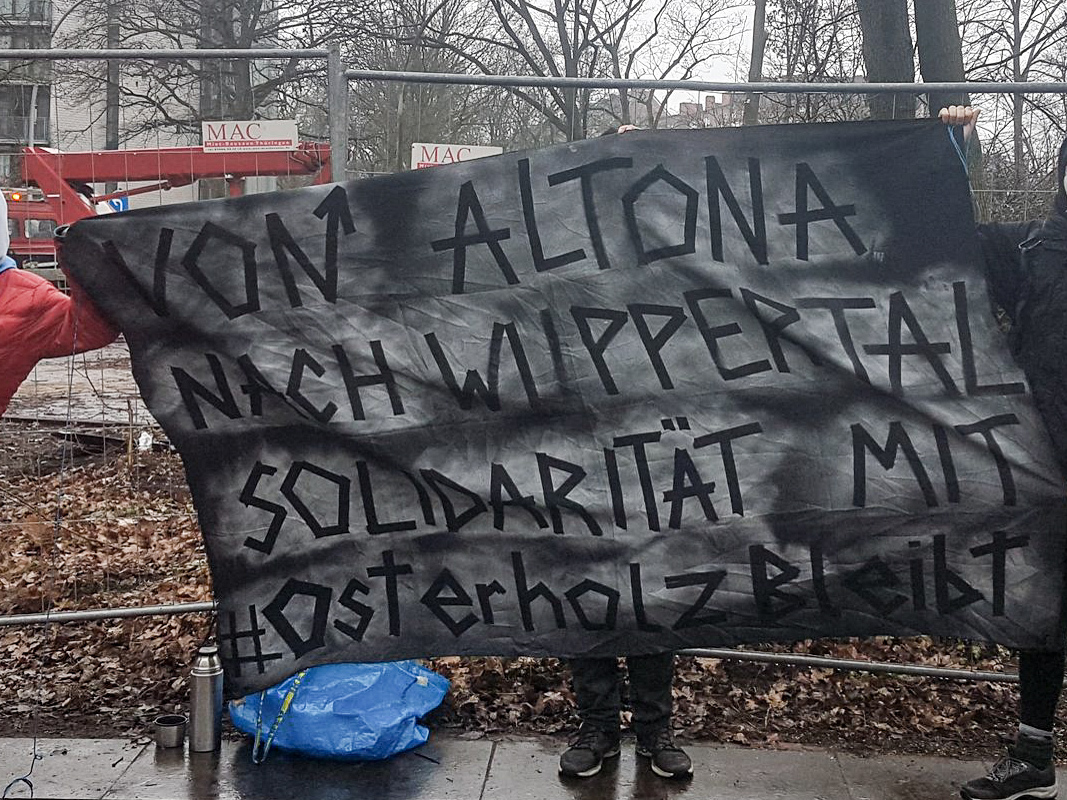 MAC
Miet-Bauzaun.Thüringen
MAC
VON ALTONA
NACH WUPPERTAL
SOLIDARITÄT MIT
#OsterholzBleibt